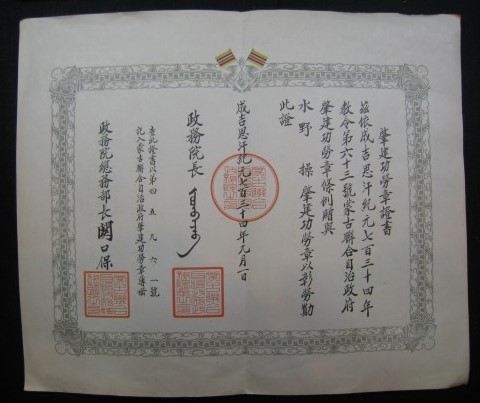 肇建功勞章證書
茲依成吉思汗紀元七百三十四年
教令第六十三號蒙古聯合自治政府
肇建功勞章條例賜與
水野 操肇建功勞章以彰勞勩
此證
成吉思汗紀元七百三十四年九月一日
政務院長
查此證書以第四五九六一號
記入蒙古聯合自治政府肇建功勞章專冊
政務院總務部長 關口保